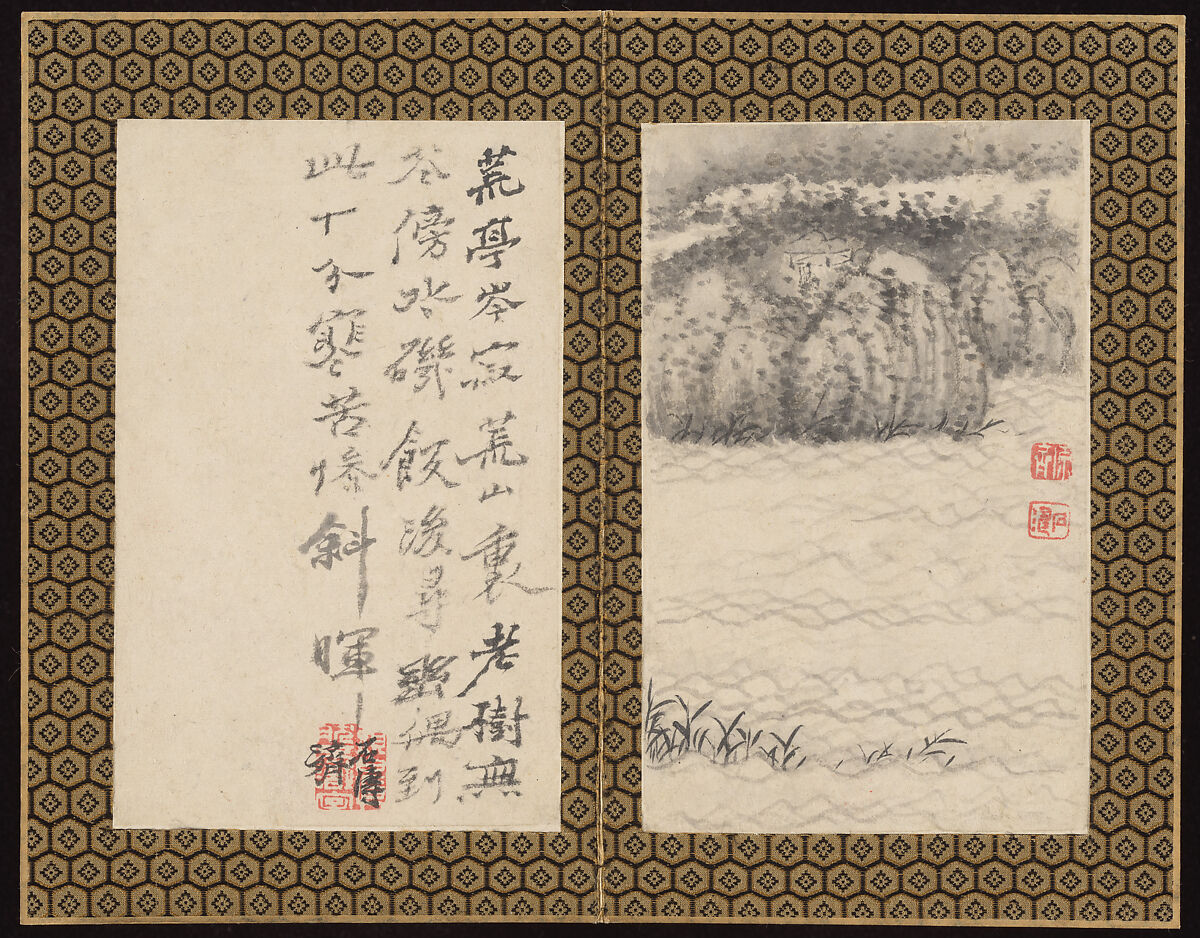 荒亭岑寂荒山裏老樹無
花傍水磯飯後尋幽偶到
此十分寒苦斜暉
石濤
濟
原濟
石濤